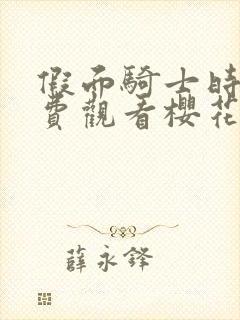 假面騎士時
費觀看櫻花
薛永鋒